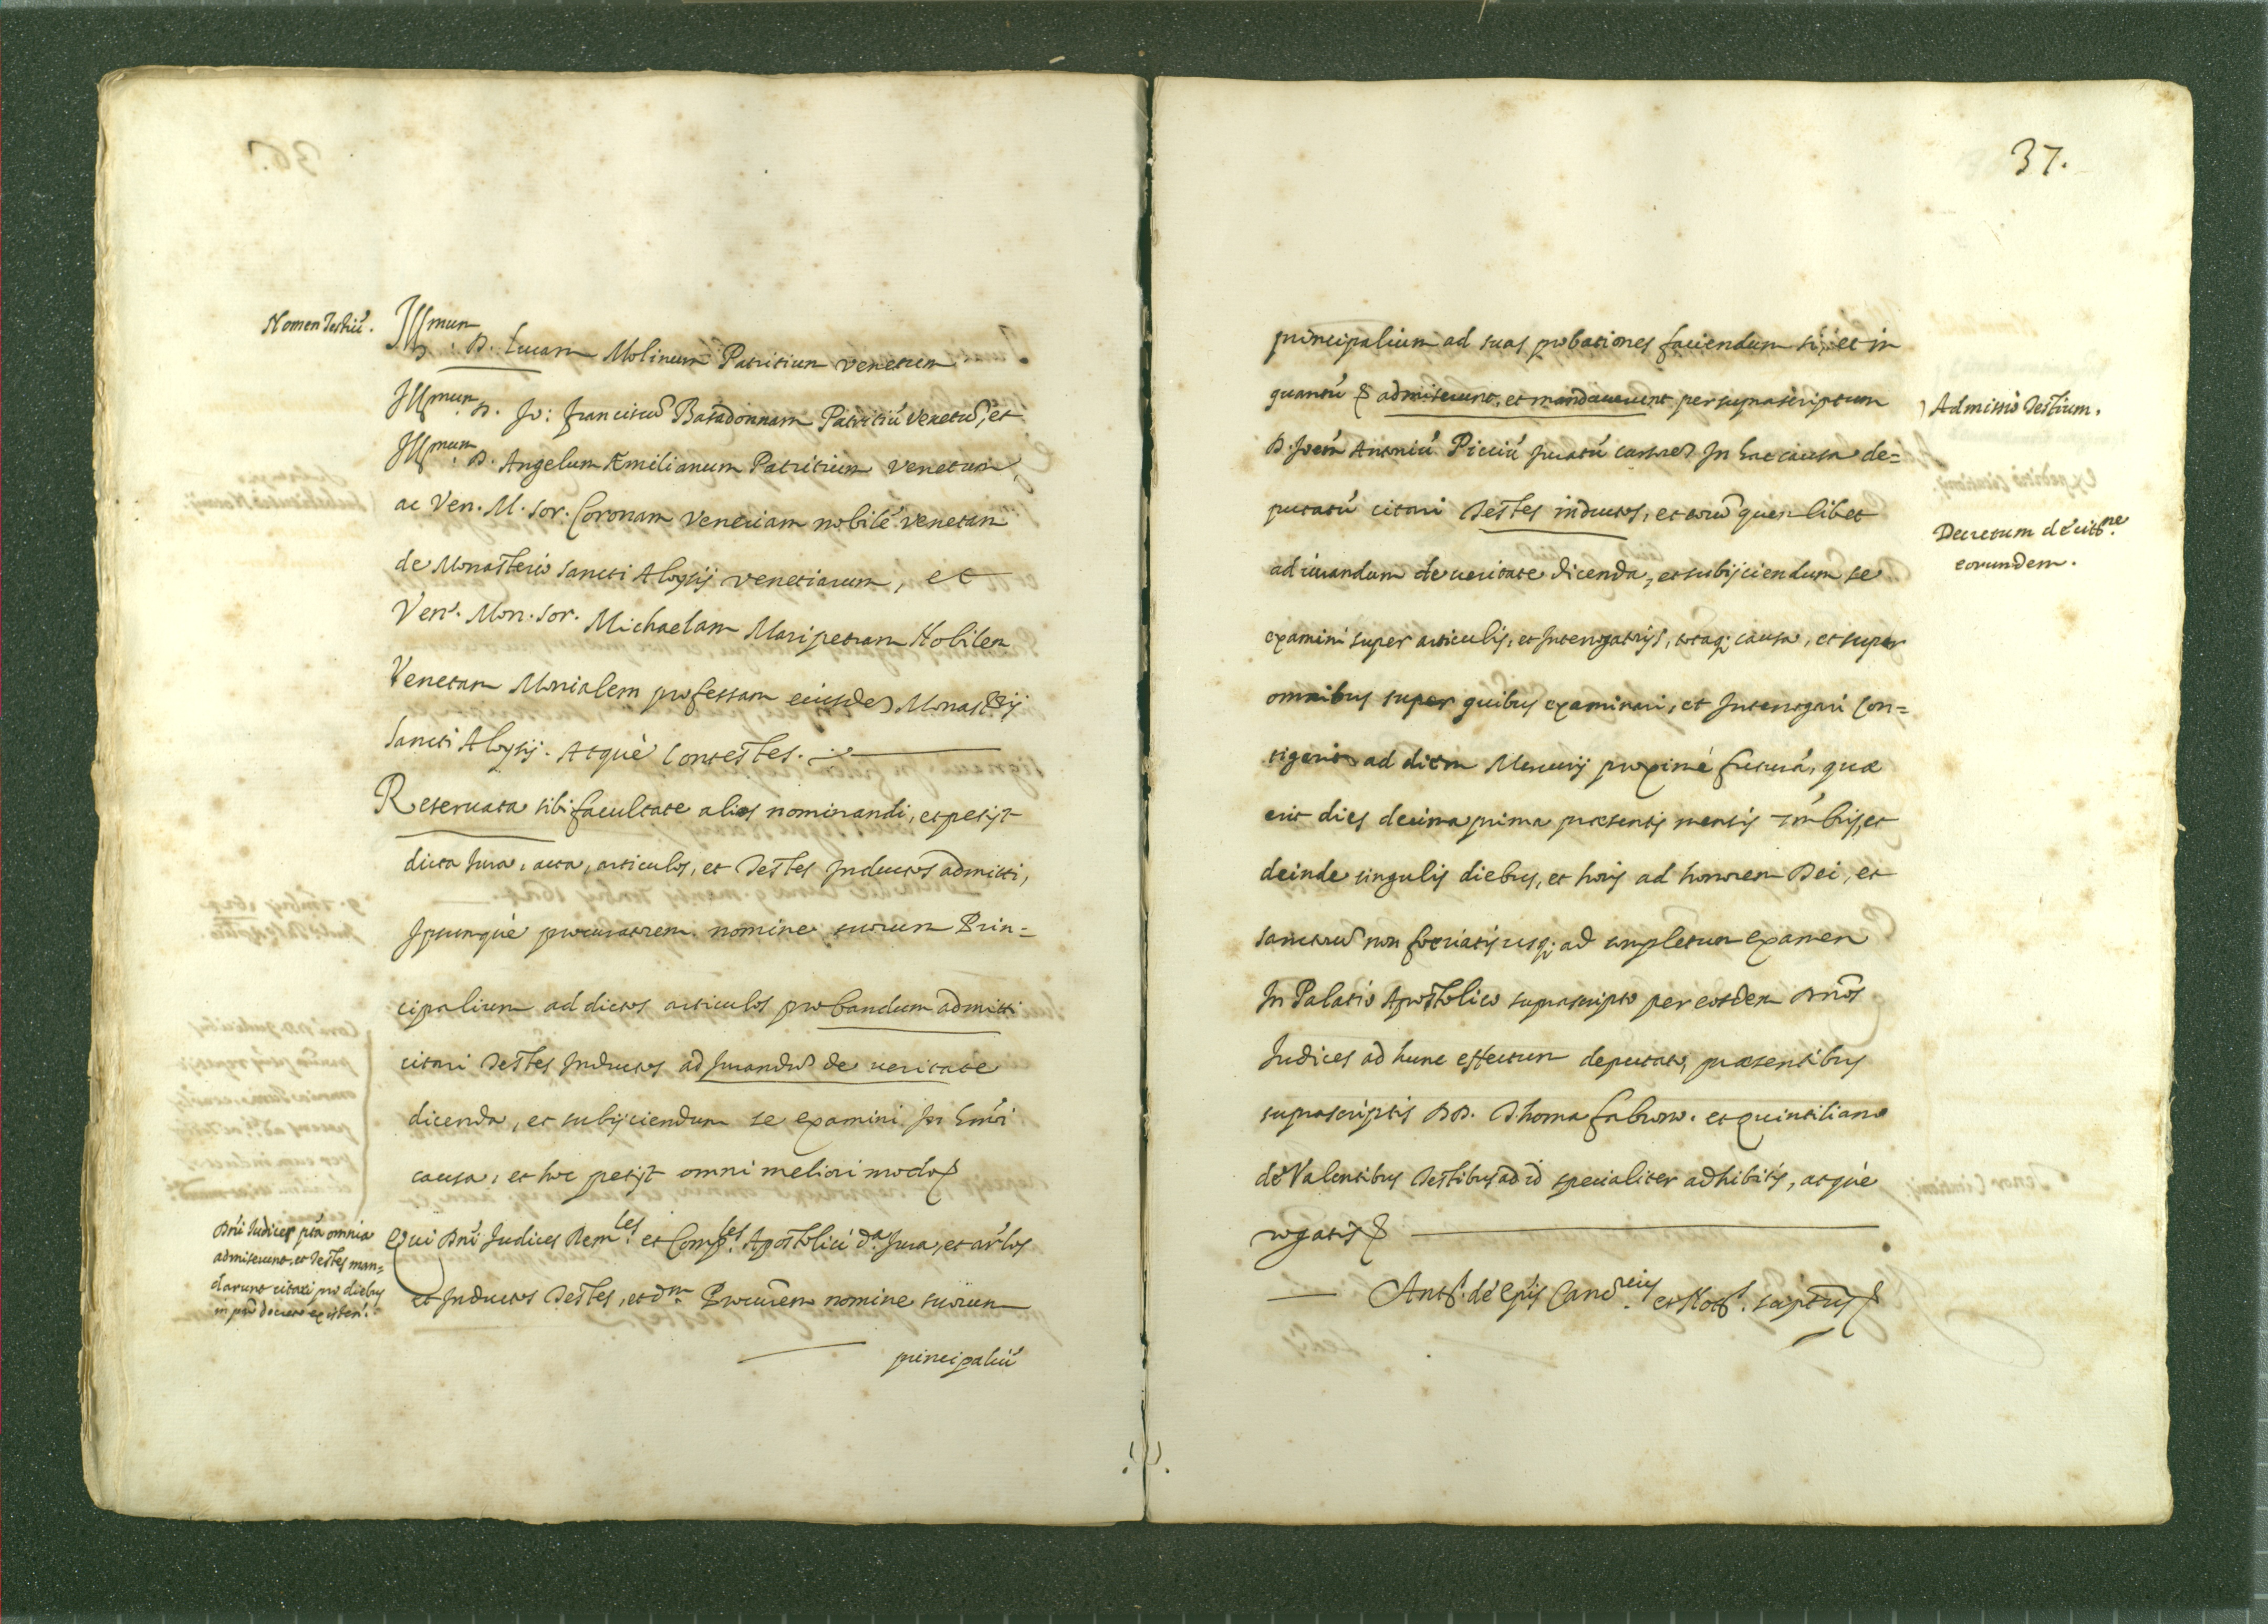 Nomen Testiū.
Illmun. D. Lucam Molinum Patritium Venetum
Illmun. D. Jo: Franciscū Baradonnam Patritiū Venetū, et
Illmun. D. Angelum Æmilianum Patritium Venetum,
ac Ven. M. Sor. Coronam Veneriam nobilē Venetam
de Monasterio Sancti Aloysij Venetiarum, et
Ven. Mon. Sor. Michaelam Maripetram Nobilem
Venetam Monialem professam eiusdē Monasterij
Sancti Aloysij. Atquè Contestes.
Reseruata sibi facultate alios nominandi, et petijt
dicta Jura, acta, articulos, et Testes Inductos admitti,
Ipsumquè procuratorem nomine suorum Prin=
cipalium ad dictos articulos probandum admitti
citari Testes Inductos ad Jurandū de ueritate
dicenda, et subijciendum se examini In hmōi
causa, et hoc petijt omni meliori modo &
Dn̄i Iudices pta omnia
admiserunt, et Testes man=
darunt citari pro diebus
in pn̄ decreto existen.
Qui Dn̄i Judices Remles. et Comples. Apostolici da. Jura, et arlos
et Inductos Testes, et dm. Procurēm nomine suorum
principaliū
37.
principalium ad suas probationes faciendum si, et in
quantū & admiserunt, et mandauerunt per suprascriptum
Admissio Testium.
D. Joēm Antoniū Picciū Juratū cursorē In hac causa de=
putatū citari Testes inductos, et eorū quemlibet
Decretum dè cittne.
eorundem.
ad iurandum de ueritate dicenda, et subijciendum se
examini super articulis, et Interrogatorijs, totaq; causa, et super
omnibus super quibus examinari, et Interrogari Con=
tigerit ad diem Mercurij proximè futurā, quæ
erit dies decima prima præsentis mensis 7mbris, et
deinde singulis diebus, et horis ad honorem Dei, et
sanctorū non feriatis usq; ad completum examen
In Palatio Apostolico suprascripto per eosdem Dn̄os
Judices ad hunc effectum deputatos, præsentibus
suprascriptis DD. Thoma Fabrono. et Quintiliano
dè Valentibus Testibus ad id specialiter adhibitis, atquè
rogatis &
Ants. dè Epis Cancreius. et Nots. scriptus &